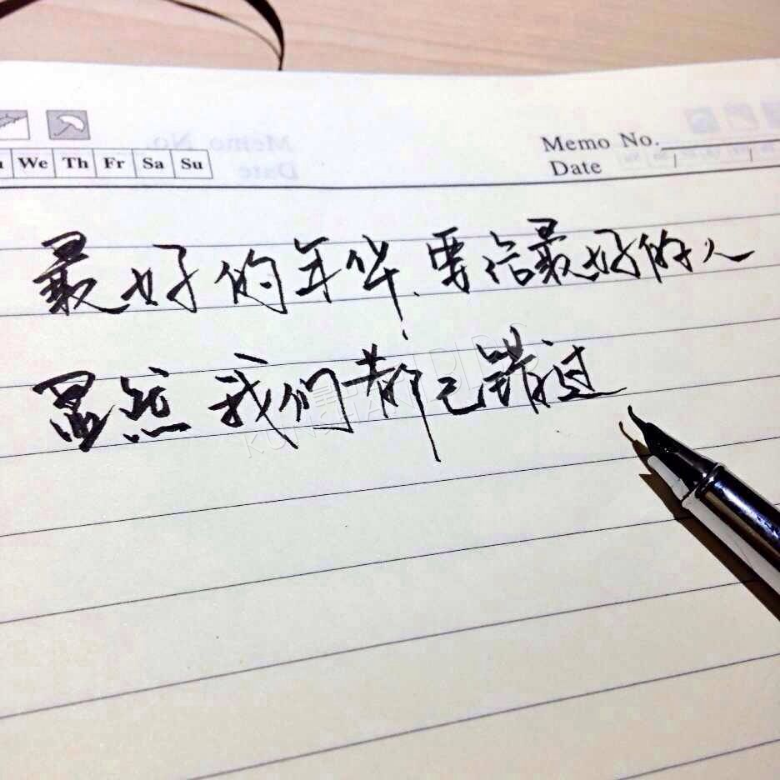 We Th Fr Sa Su
Memo No.
Date
最好的年华,要给最好的人
虽然我们都已错过